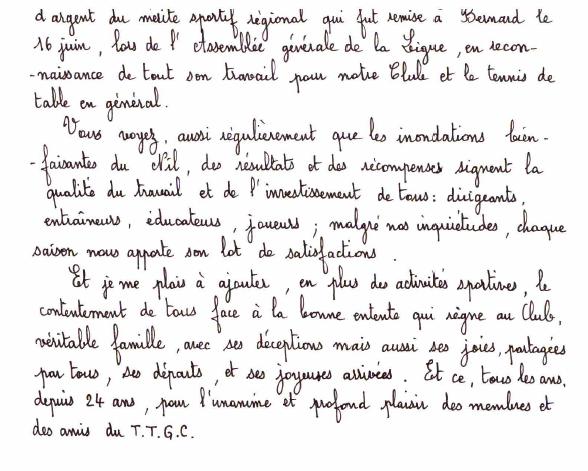 d'argent du mérite sportif régional qui fut remise à Bernard le
16 juin, lors de l'Assemblée générale de la Ligue, en recon-
-naissance de tout son travail pour notre Club et le tennis de
table en général.
Vous voyez, aussi régulièrement que les inondations bien-
-faisantes du Nil, des résultats et des récompenses signent la
qualité du travail et de l'investissement de tous : dirigeants,
entraîneurs, éducateurs, joueurs ; malgré nos inquiétudes, chaque
saison nous apporte son lot de satisfactions.
Et je me plais à ajouter, en plus des activités sportives, le
contentement de tous face à la bonne entente qui règne au Club,
véritable famille, avec ses déceptions mais aussi ses joies, partagées
par tous, ses départs, et ses joyeuses arrivées. Et ce, tous les ans,
depuis 24 ans, pour l'unanime et profond plaisir des membres et
des amis du T.T.G.C.